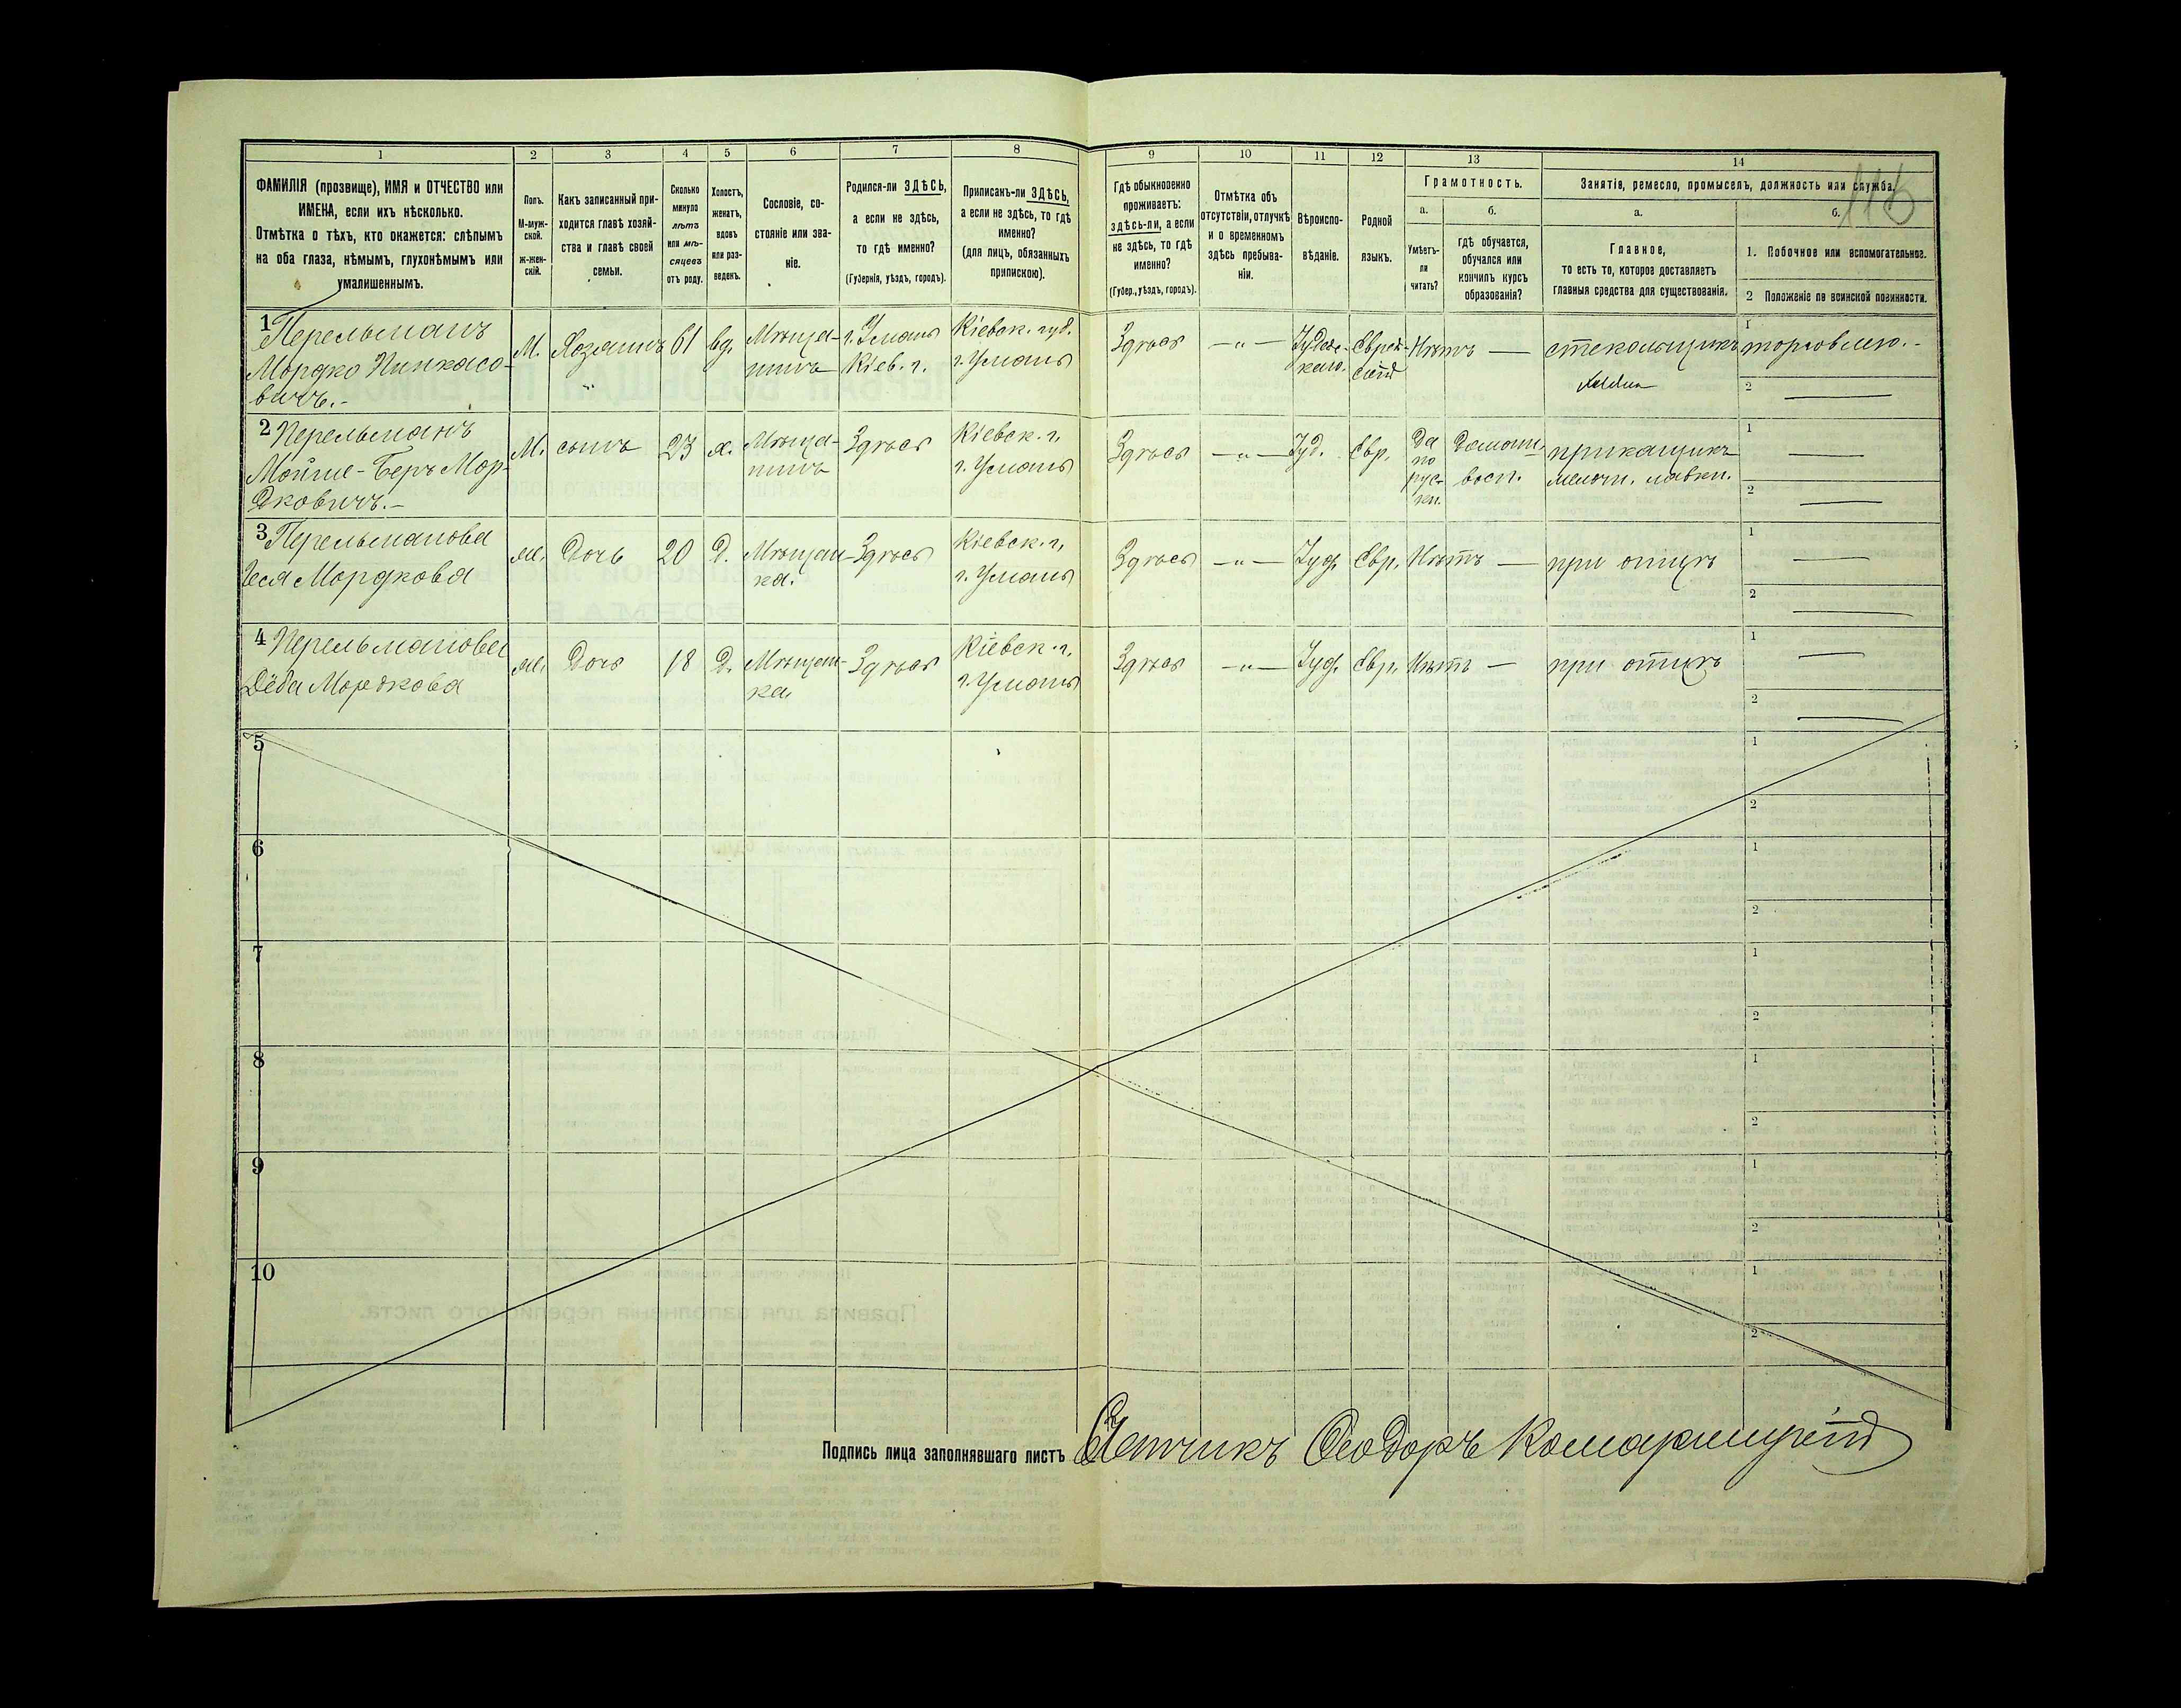 1 2 3 4 5 6 7 8 9 10 11 12 13 14
ФАМИЛІЯ (прозвище), ИМЯ и ОТЧЕСТВО или
ИМЕНА, если ихъ нѣсколько.
Отмѣтка о тѣхъ, кто окажется: слѣпымъ
на оба глаза, нѣмымъ, глухонѣмымъ или
умалишеннымъ.
Полъ.
М-муж-
ской.
ж-жен-
скій.
Какъ записанный при-
ходится главѣ хозяй-
ства и главѣ своей
семьи.
Сколько
минуло
лѣтъ
или мѣ-
сяцевъ
отъ роду.
Холостъ,
женатъ,
вдовъ
или раз-
веденъ.
Сословіе, со-
стояніе или зва-
ніе.
Родился-ли ЗДѢСЬ,
а если не здѣсь,
то гдѣ именно?
(Губернія, уѣздъ, городъ).
Приписанъ-ли ЗДѢСЬ,
а если не здѣсь, то гдѣ
именно?
(для лицъ, обязанныхъ
припискою).
Гдѣ обыкновенно
проживаетъ:
здѣсь-ли, а если
не здѣсь, то гдѣ
именно?
(Губер., уѣздъ, городъ).
Отмѣтка объ
отсутствіи, отлучкѣ
и о временномъ
здѣсь пребыва-
ніи.
Вѣроиспо-
вѣданіе.
Родной
языкъ.
Грамотность.
а.
Умѣетъ-
ли
читать?
б.
гдѣ обучается,
обучался или
кончилъ курсъ
образованія?
Занятія, ремесло, промыселъ, должность или служба.
а.
Главное,
то есть то, которое доставляетъ
главныя средства для существованія.
б.
1. Побочное или вспомогательное.
2 Положеніе по воинской повинности.
1 Перельманъ
Мордко Пинкасо-
вичъ.-
М.
Хозяинъ
61
вд.
Мѣща-
нинъ
г. Умань
Кіев. г.
Кіевск. губ.
г. Умань
Здѣсь
-"-
Іудейс-
каго.
Еврей-
скій
Нѣтъ
—
стекольщикъ
1
торговлею.-
2
2 Перельманъ
Мойше-Беръ Мор-
дковичъ.-
М.
сынъ
23
х.
Мѣща-
нинъ
Здѣсь
Кіевск. г.
г. Умань
Здѣсь
-"-
Іуд.
Евр.
Да
по
рус-
ки.
Домашн.
восп.
прикащикъ
мелочн. лавки.
1
2
3 Перельманова
Мордкова
ж.
Дочь
20
д.
Мѣщан-
ка.
Здѣсь
Кіевск. г.
г. Умань
Здѣсь
-"-
Іуд.
Евр.
Нѣтъ
—
при отцѣ
1
2
4 Перельманова
Мордкова
ж.
Дочь
18
д.
Мѣщан-
ка
Здѣсь
Кіевск. г.
г. Умань
Здѣсь
-"-
Іуд.
Евр.
Нѣтъ
—
при отцѣ
1
2
5
1
2
6
1
2
7
1
2
8
1
2
9
1
2
10
1
2
Подпись лица заполнявшаго листъ Счетчикъ Ѳеодоръ Комарницкій